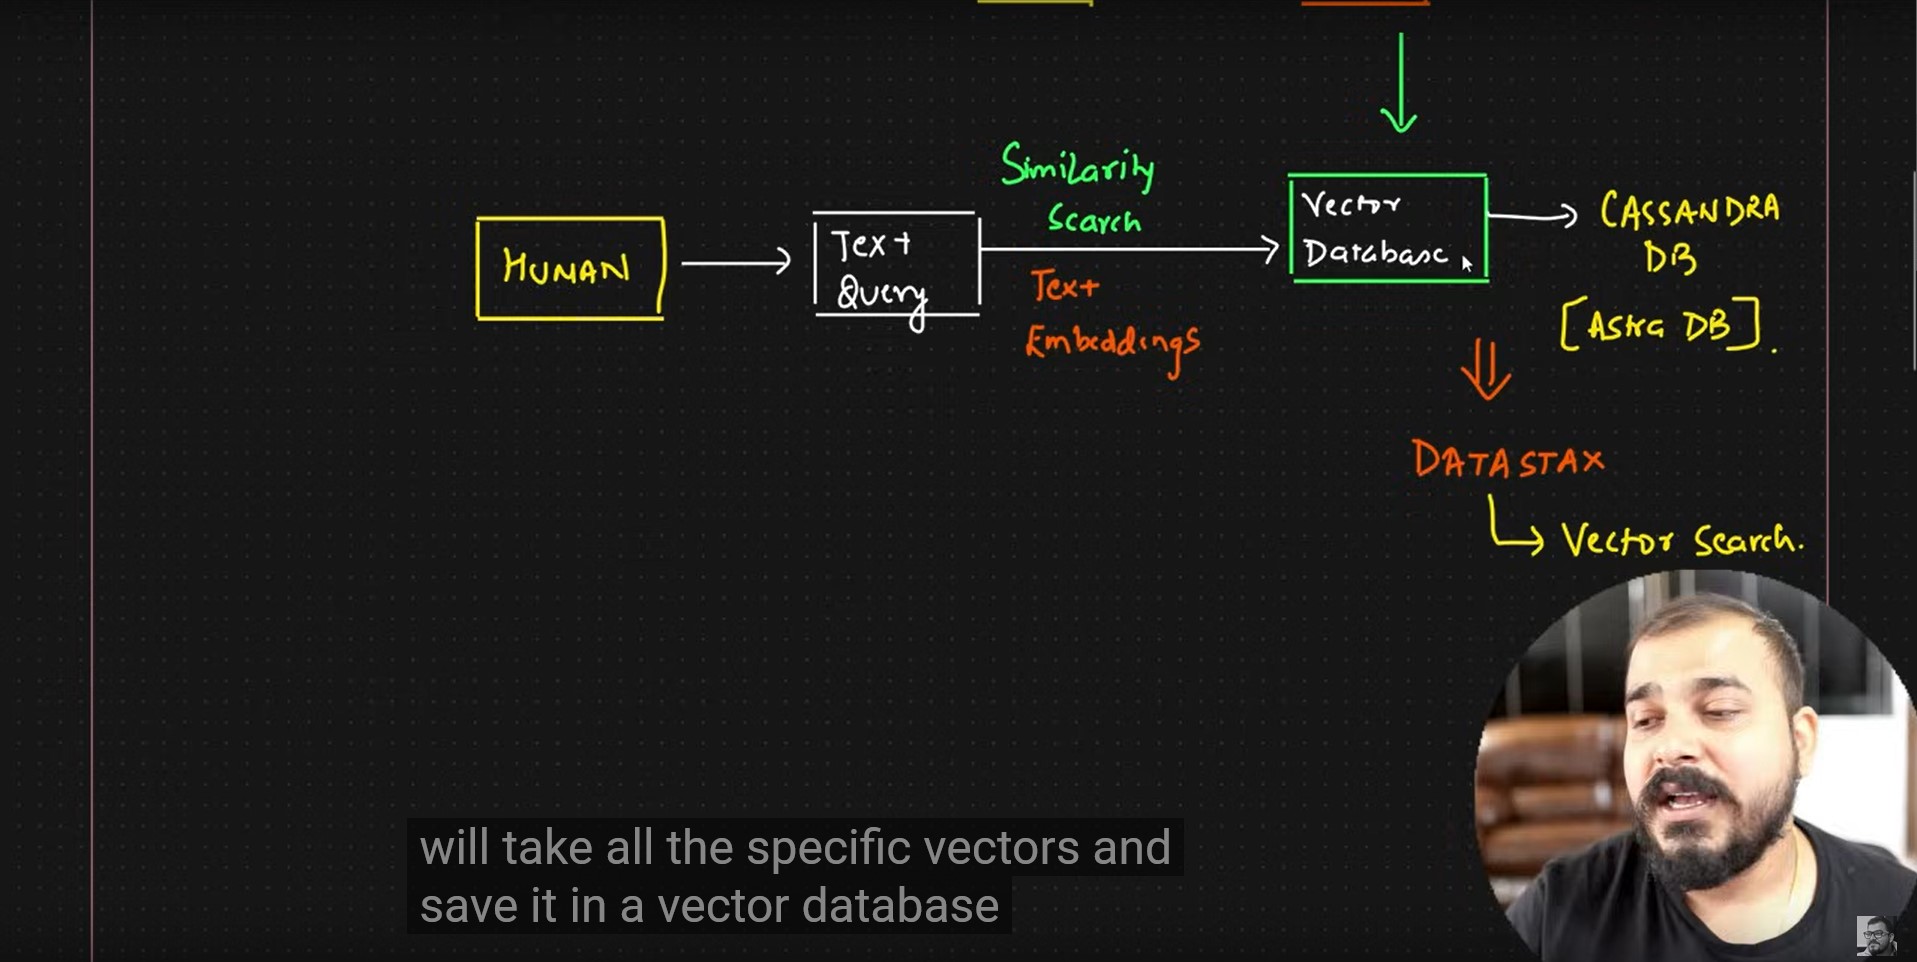 Similarity
Search
HUMAN
Text
Query
Text
Embeddings
Vector
Database
CASSANDRA
DB
[Astra DB].
DATASTAX
Vector Search.
will take all the specific vectors and
save it in a vector database